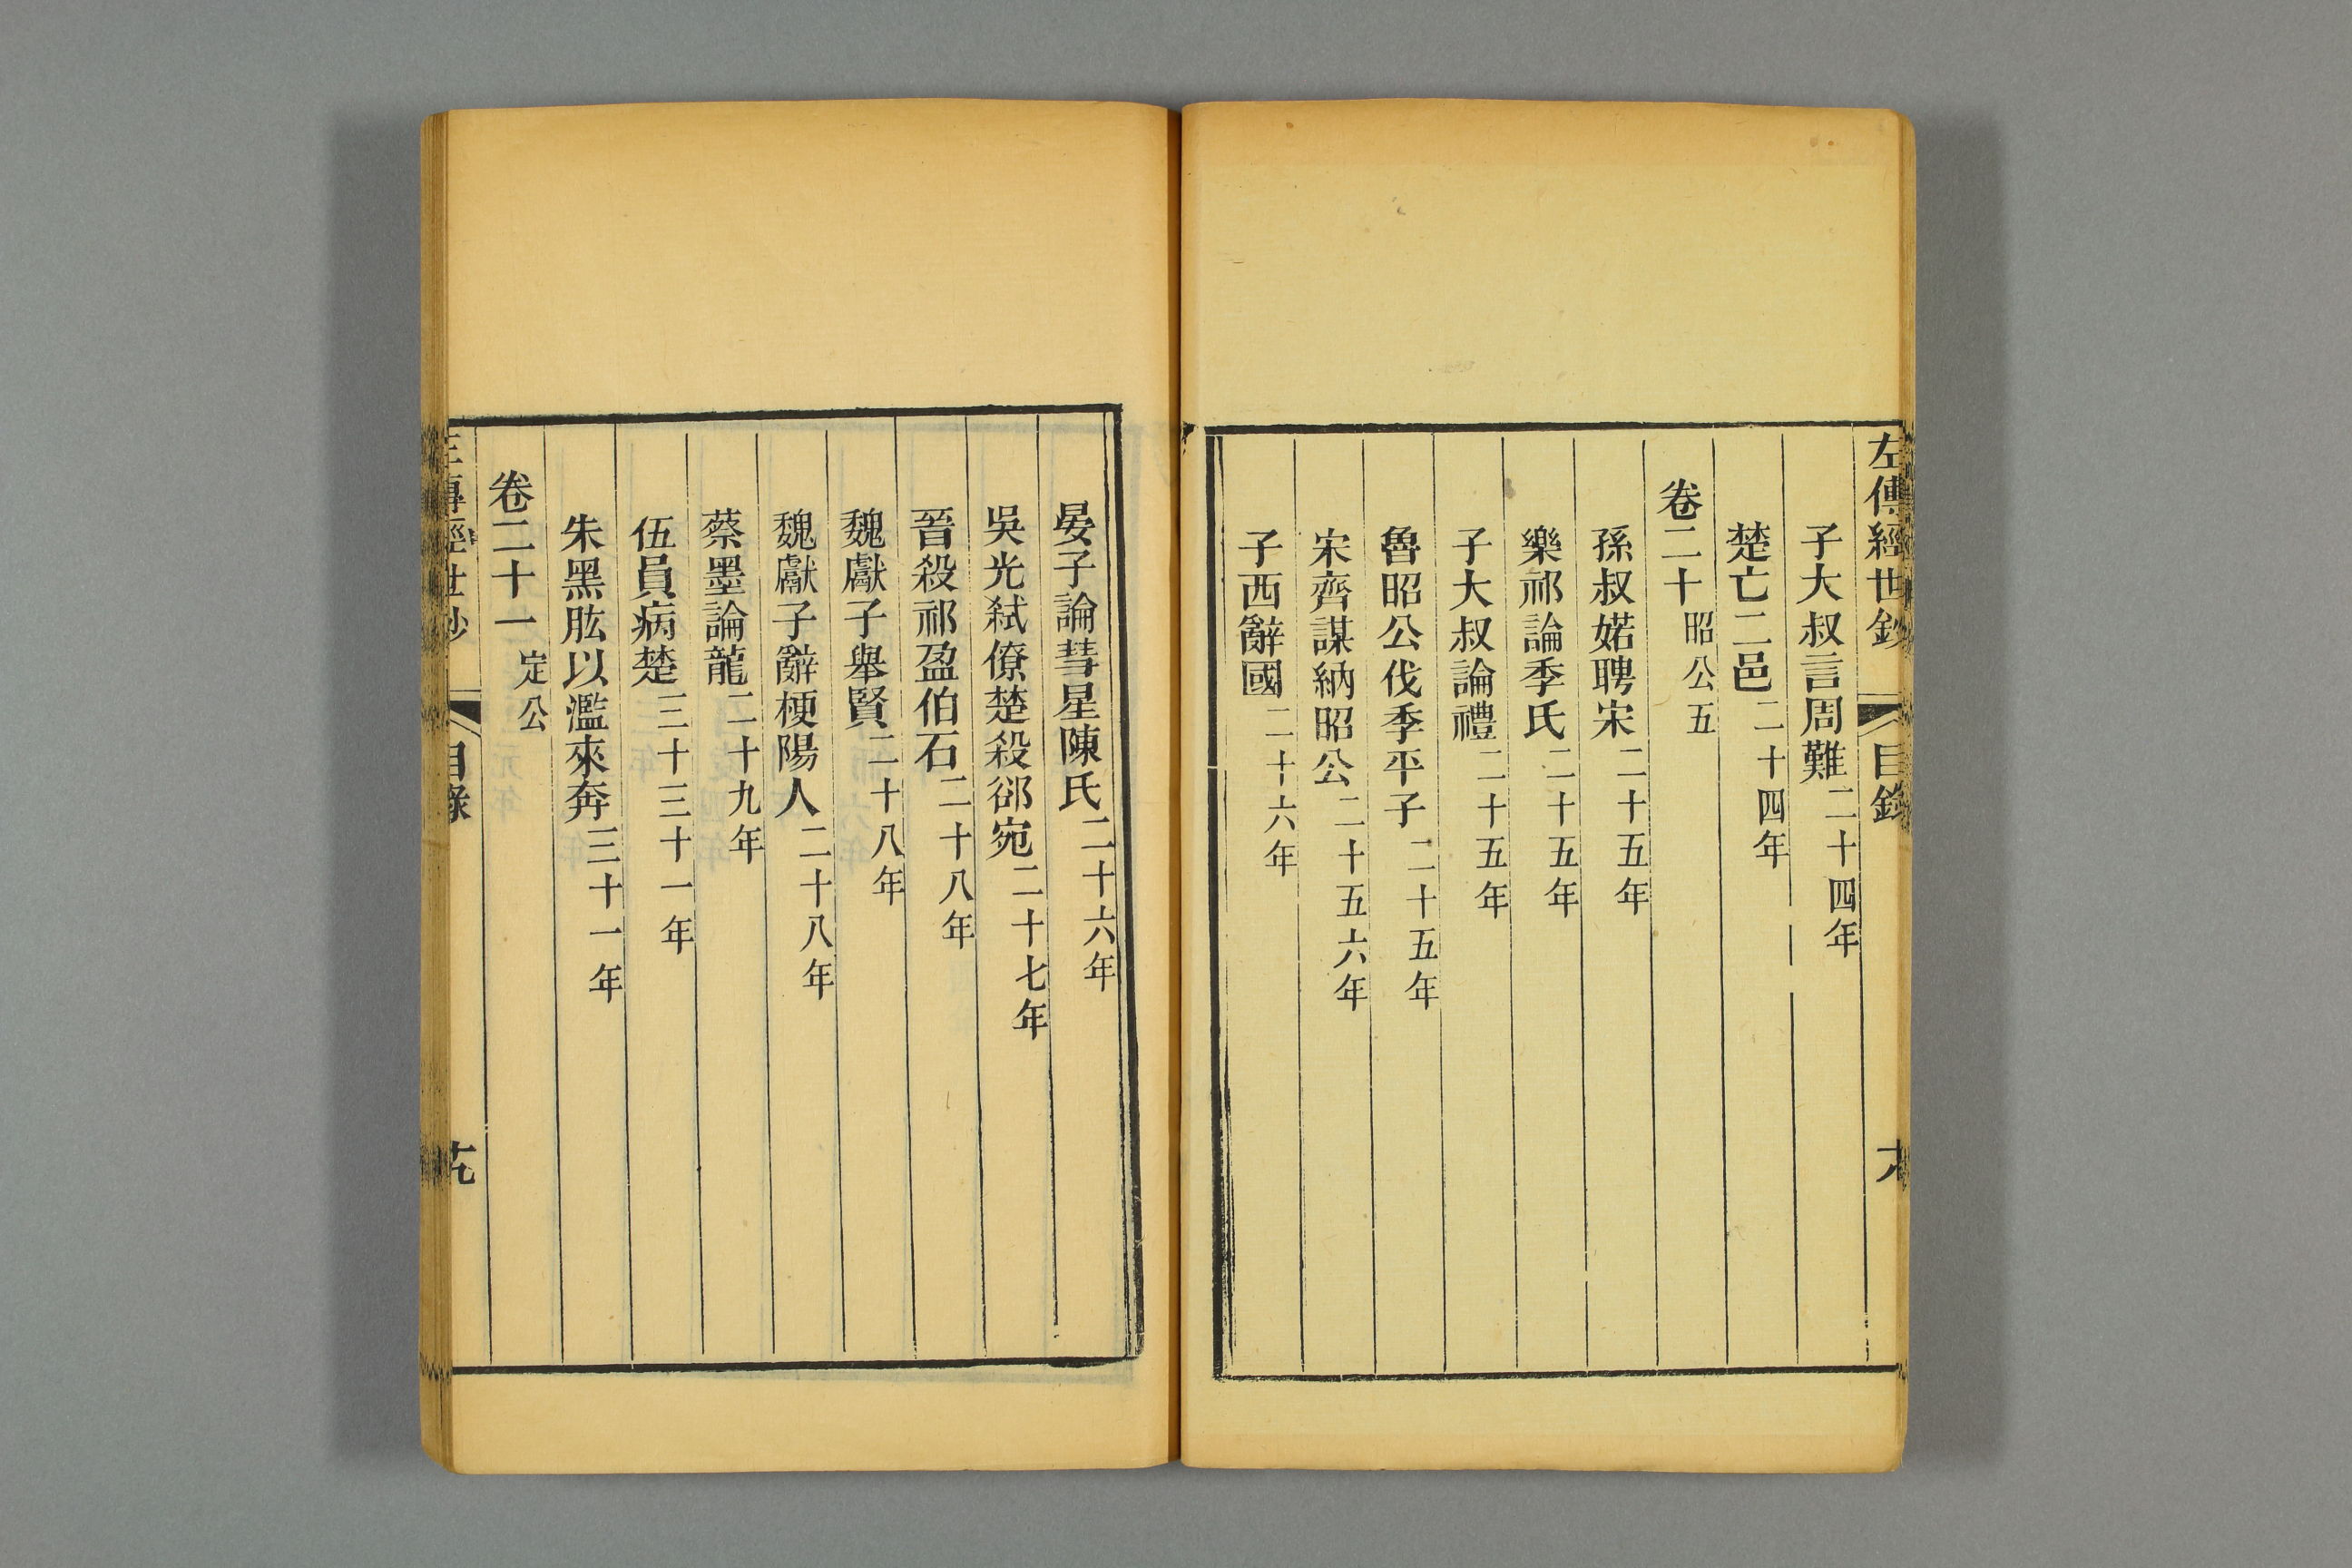 左傳經世鈔 目錄
子大叔言周難二十四年
楚亡二邑二十四年
卷二十昭公五
孫叔婼聘宋二十五年
樂祁論季氏二十五年
子大叔論禮二十五年
魯昭公伐季平子二十五年
宋齊謀納昭公二十五六年
子西辭國二十六年
晏子論彗星陳氏二十六年
吳光弒僚楚殺郤宛二十七年
晉殺祁盈伯石二十八年
魏獻子舉賢二十八年
魏獻子辭梗陽人二十八年
蔡墨論龍二十九年
伍員病楚三十三十一年
朱黑肱以濫來奔三十一年
卷二十一定公
左傳經世鈔 目錄